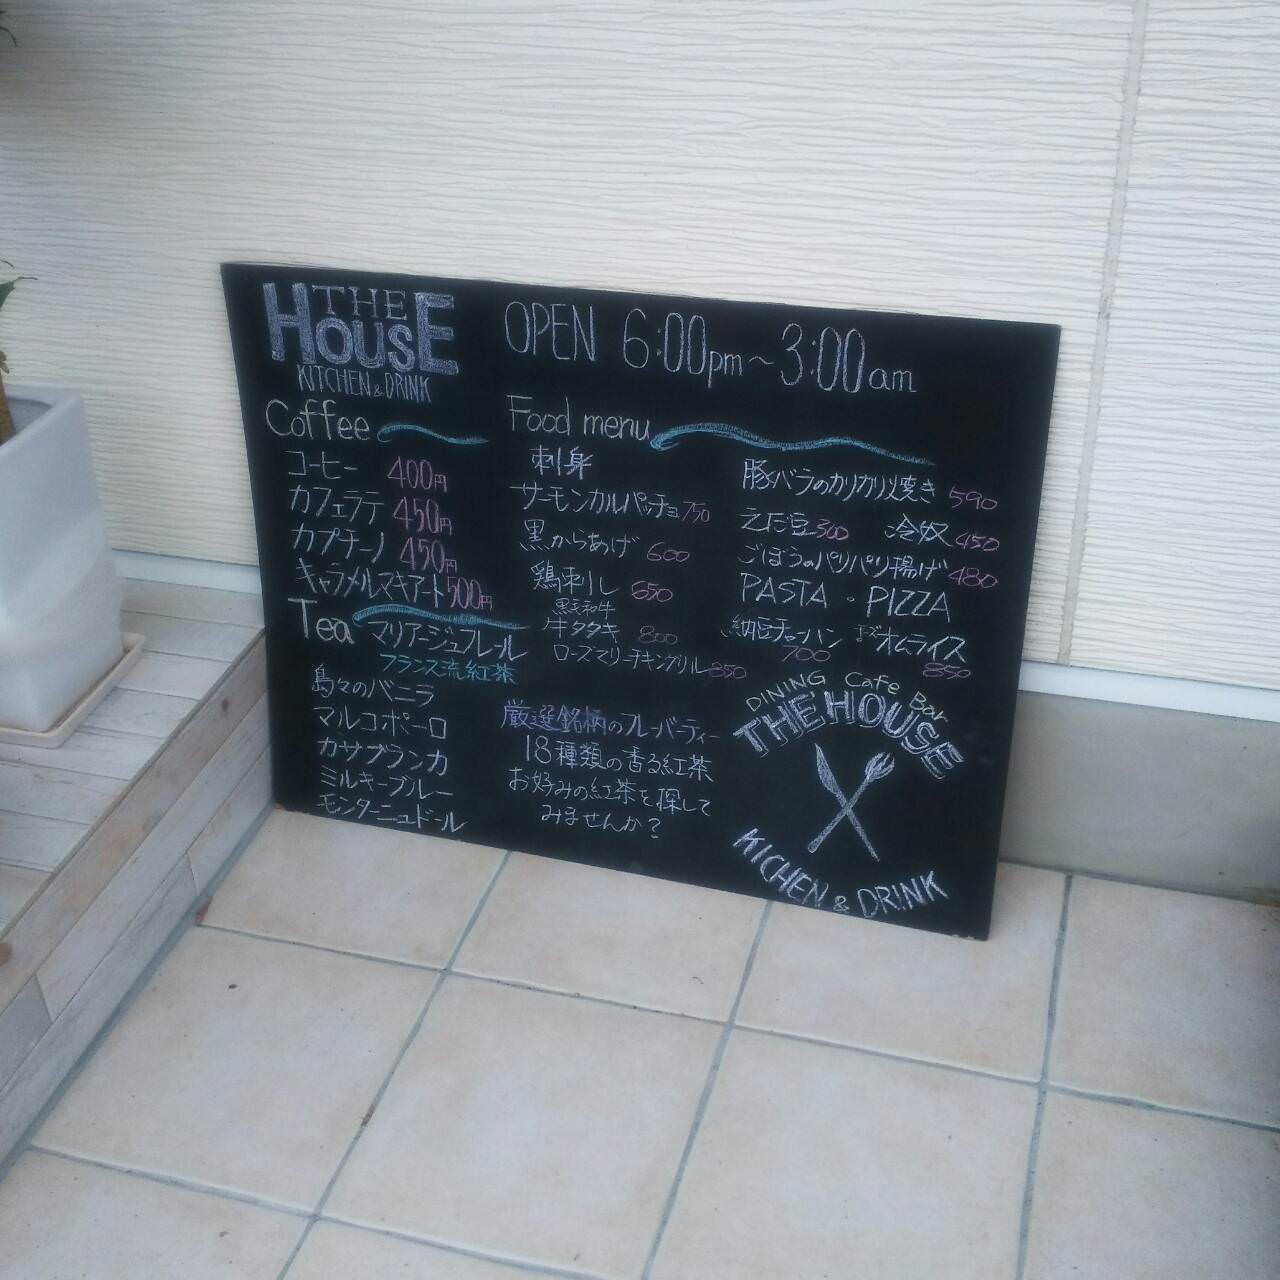 THE
HOUSE
KITCHEN & DRINK
OPEN 6:00pm～3:00am
Coffee
コーヒー 400円
カフェラテ 450円
カプチーノ 450円
キャラメルマキアート 500円
Tea マリアージュフレール
フランス流紅茶
島々のバニラ
マルコポーロ
カサブランカ
ミルキーブルー
モンターニュドール
Food menu
刺身
サーモンカルパッチョ 750
黒からあげ 600
鶏刺し 650
黒毛和牛
牛タタキ 800
ローズマリーチキングリル 850
豚バラのカリカリ焼き 590
えだ豆 300 冷奴 450
ごぼうのパリパリ揚げ 480
PASTA・PIZZA
納豆チャーハン 700
オムライス 850
厳選銘柄のフレーバーティー
18種類の香る紅茶
お好みの紅茶を探して
みませんか？
DINING Cafe Bar
THE HOUSE
KICHEN & DRINK